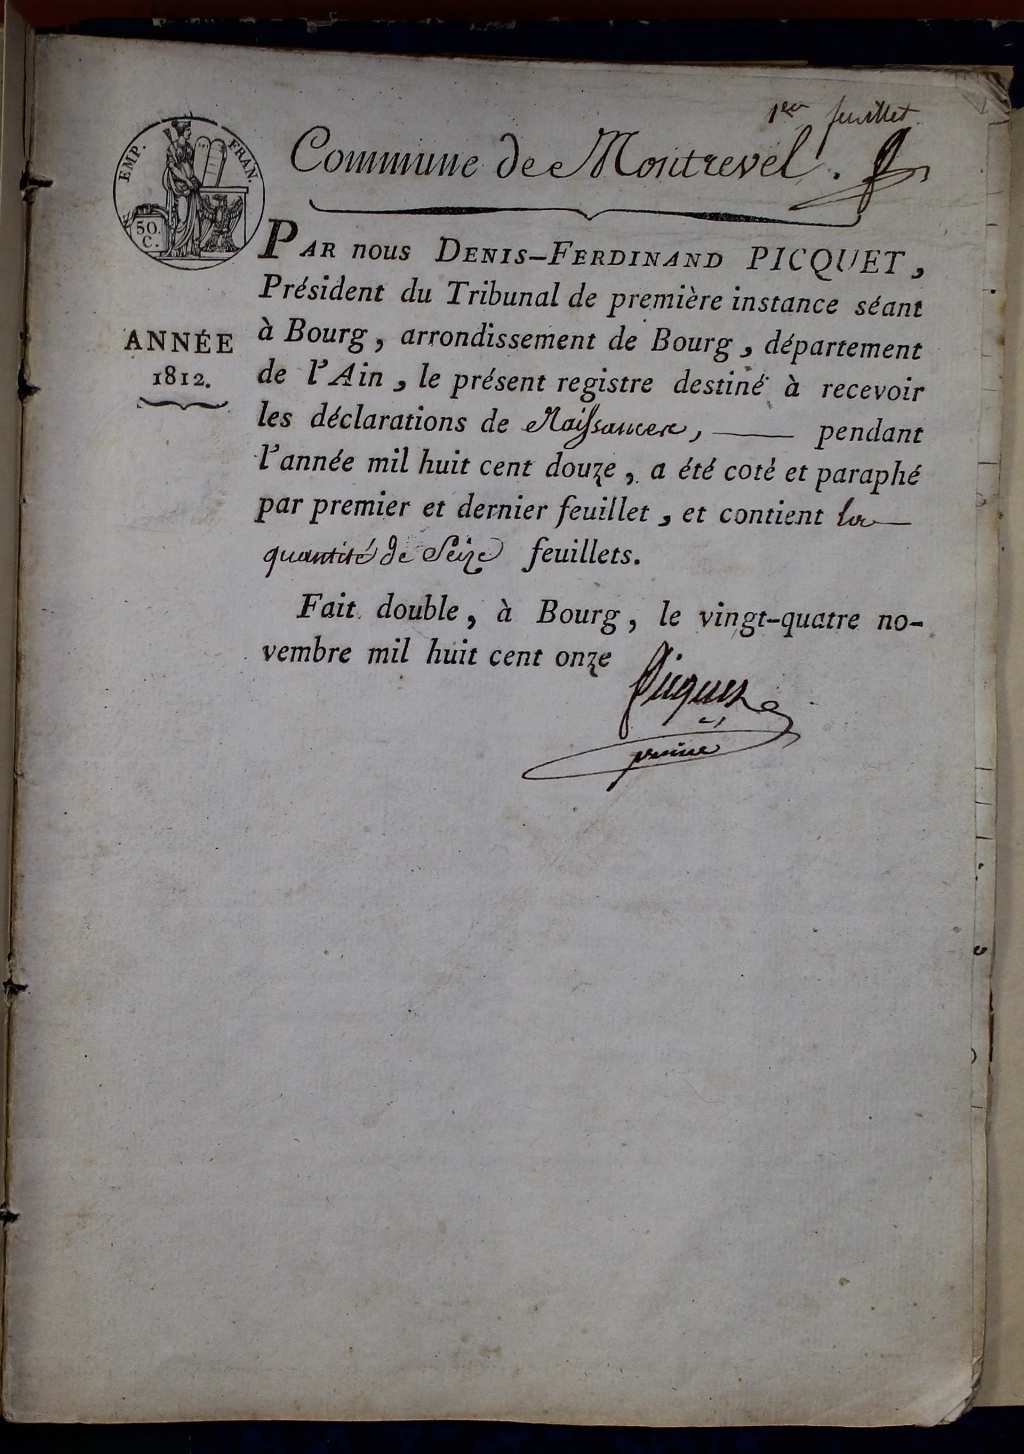 1er feuillet
EMP. FRAN.
50. C.
Commune de Montrevel.
ANNÉE
1812.
PAR nous DENIS-FERDINAND PICQUET,
Président du Tribunal de première instance séant
à Bourg, arrondissement de Bourg, département
de l'Ain, le présent registre destiné à recevoir
les déclarations de Naissances, — pendant
l'année mil huit cent douze, a été coté et paraphé
par premier et dernier feuillet, et contient la
quantité de Seize feuillets.
Fait double, à Bourg, le vingt-quatre no-
vembre mil huit cent onze
Picquet